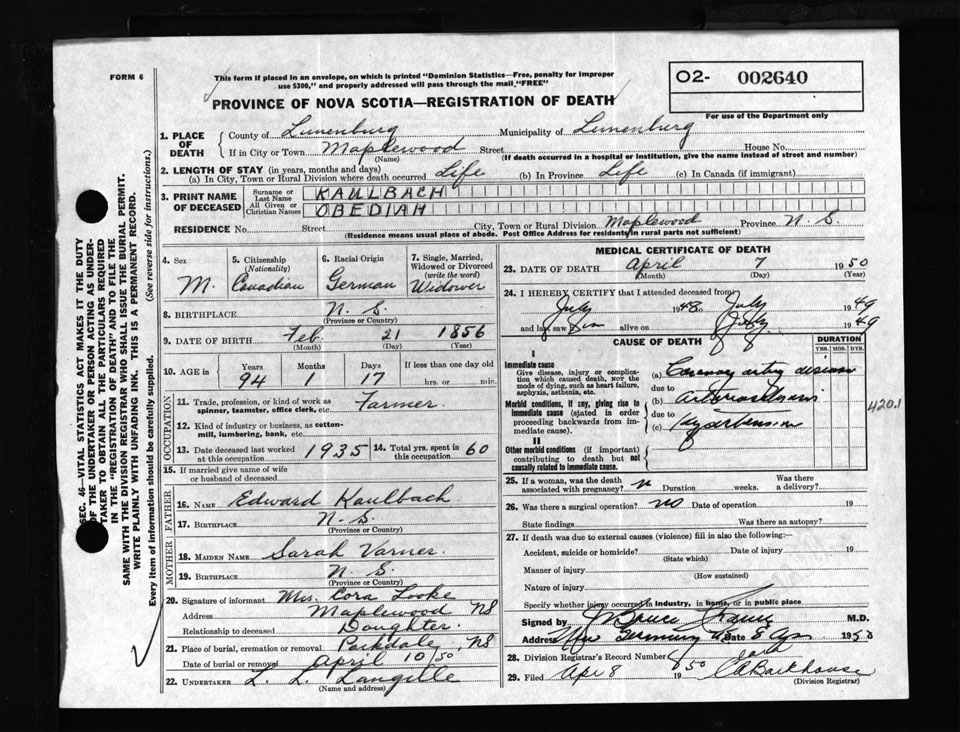 FORM 6
This form if placed in an envelope, on which is printed "Dominion Statistics—Free, penalty for improper
use $300," and properly addressed will pass through the mail "FREE"
O2- 002640
For use of the Department only
PROVINCE OF NOVA SCOTIA—REGISTRATION OF DEATH
1. PLACE OF DEATH
County of Lunenburg Municipality of Lunenburg
If in City or Town Maplewood Street House No.
(Name) (If death occurred in a hospital or institution, give the name instead of street and number)
2. LENGTH OF STAY (in years, months and days)
(a) In City, Town or Rural Division where death occurred Life (b) In Province Life (c) In Canada (if immigrant)
3. PRINT NAME OF DECEASED
Surname or Last Name KAULBACH
All Given or Christian Names OBEDIAH
RESIDENCE No. Street City, Town or Rural Division Maplewood Province N. S.
(Residence means usual place of abode. Post Office Address for residents in rural parts not sufficient)
4. Sex M.
5. Citizenship (Nationality) Canadian
6. Racial Origin German
7. Single, Married, Widowed or Divorced (write the word) Widower
8. BIRTHPLACE N. S.
(Province or Country)
9. DATE OF BIRTH Feb. 21 1856
(Month) (Day) (Year)
10. AGE in Years 94 Months 1 Days 17 If less than one day old hrs. or min.
OCCUPATION
11. Trade, profession, or kind of work as spinner, teamster, office clerk, etc. Farmer
12. Kind of industry or business, as cotton-mill, lumbering, bank, etc.
13. Date deceased last worked at this occupation 1935
14. Total yrs. spent in this occupation 60
15. If married give name of wife or husband of deceased
FATHER
16. NAME Edward Kaulbach
17. BIRTHPLACE N. S.
(Province or Country)
MOTHER
18. MAIDEN NAME Sarah Varner.
19. BIRTHPLACE N. S.
(Province or Country)
20. Signature of informant Mrs. Cora
Address Maplewood NS
Relationship to deceased Daughter.
21. Place of burial, cremation or removal Parkdale, NS
Date of burial or removal April 10/50
22. UNDERTAKER L. L. Langille
(Name and address)
MEDICAL CERTIFICATE OF DEATH
23. DATE OF DEATH April 7 1950
(Month) (Day) (Year)
24. I HEREBY CERTIFY that I attended deceased from:
July 1948 July 1949
and last saw him alive on July 1949
CAUSE OF DEATH
DURATION
YRS. MOS. DYS.
I
Immediate cause
Give disease, injury or complication which caused death, NOT the mode of dying, such as heart failure, asphyxia, asthenia, etc.
(a) Coronary artery disease
due to
Morbid conditions, if any, giving rise to immediate cause (stated in order proceeding backwards from immediate cause).
(b) arteriosclerosis
due to
(c) hypertension
420.1
II
Other morbid conditions (if important) contributing to death but not causally related to immediate cause.
25. If a woman, was the death associated with pregnancy? n Duration weeks. Was there a delivery?
26. Was there a surgical operation? no Date of operation 19
State findings Was there an autopsy?
27. If death was due to external causes (violence) fill in also the following:—
Accident, suicide or homicide? Date of injury 19
(State which)
Manner of injury
(How sustained)
Nature of injury
Specify whether injury occurred in industry, in home, or in public place
Signed by Bruce M.D.
Address New Germany Date 8 Apr 1950
28. Division Registrar's Record Number
29. Filed Apr 8 1950 Barkhouse
(Division Registrar)
SEC. 46—VITAL STATISTICS ACT MAKES IT THE DUTY
OF THE UNDERTAKER OR PERSON ACTING AS UNDER-
TAKER TO OBTAIN ALL THE PARTICULARS REQUIRED
IN THE "REGISTRATION OF DEATH" AND TO FILE THE
SAME WITH THE DIVISION REGISTRAR WHO SHALL ISSUE THE BURIAL PERMIT.
WRITE PLAINLY WITH UNFADING INK. THIS IS A PERMANENT RECORD.
Every item of information should be carefully supplied. (See reverse side for instructions.)